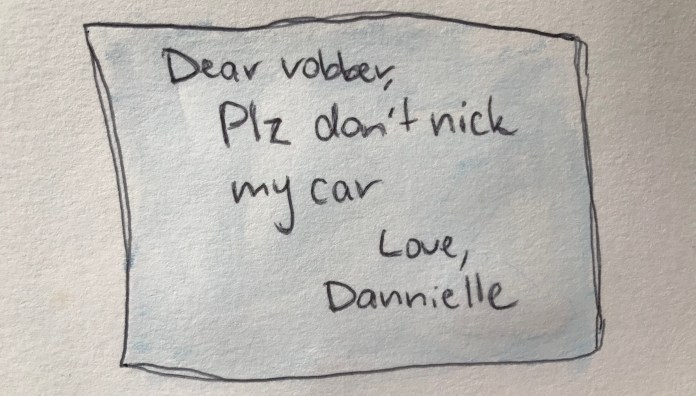 Dear robber,
Plz don't nick
my car
Love,
Dannielle